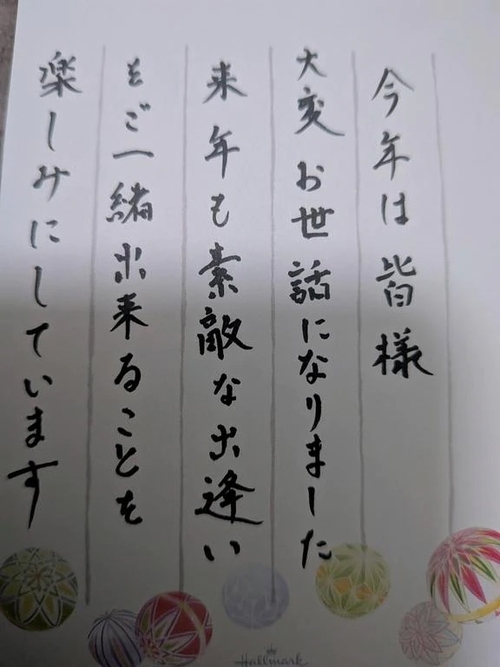 今年は皆様
大変お世話になりました
来年も素敵な出逢い
をご一緒出来ることを
楽しみにしています
Hallmark